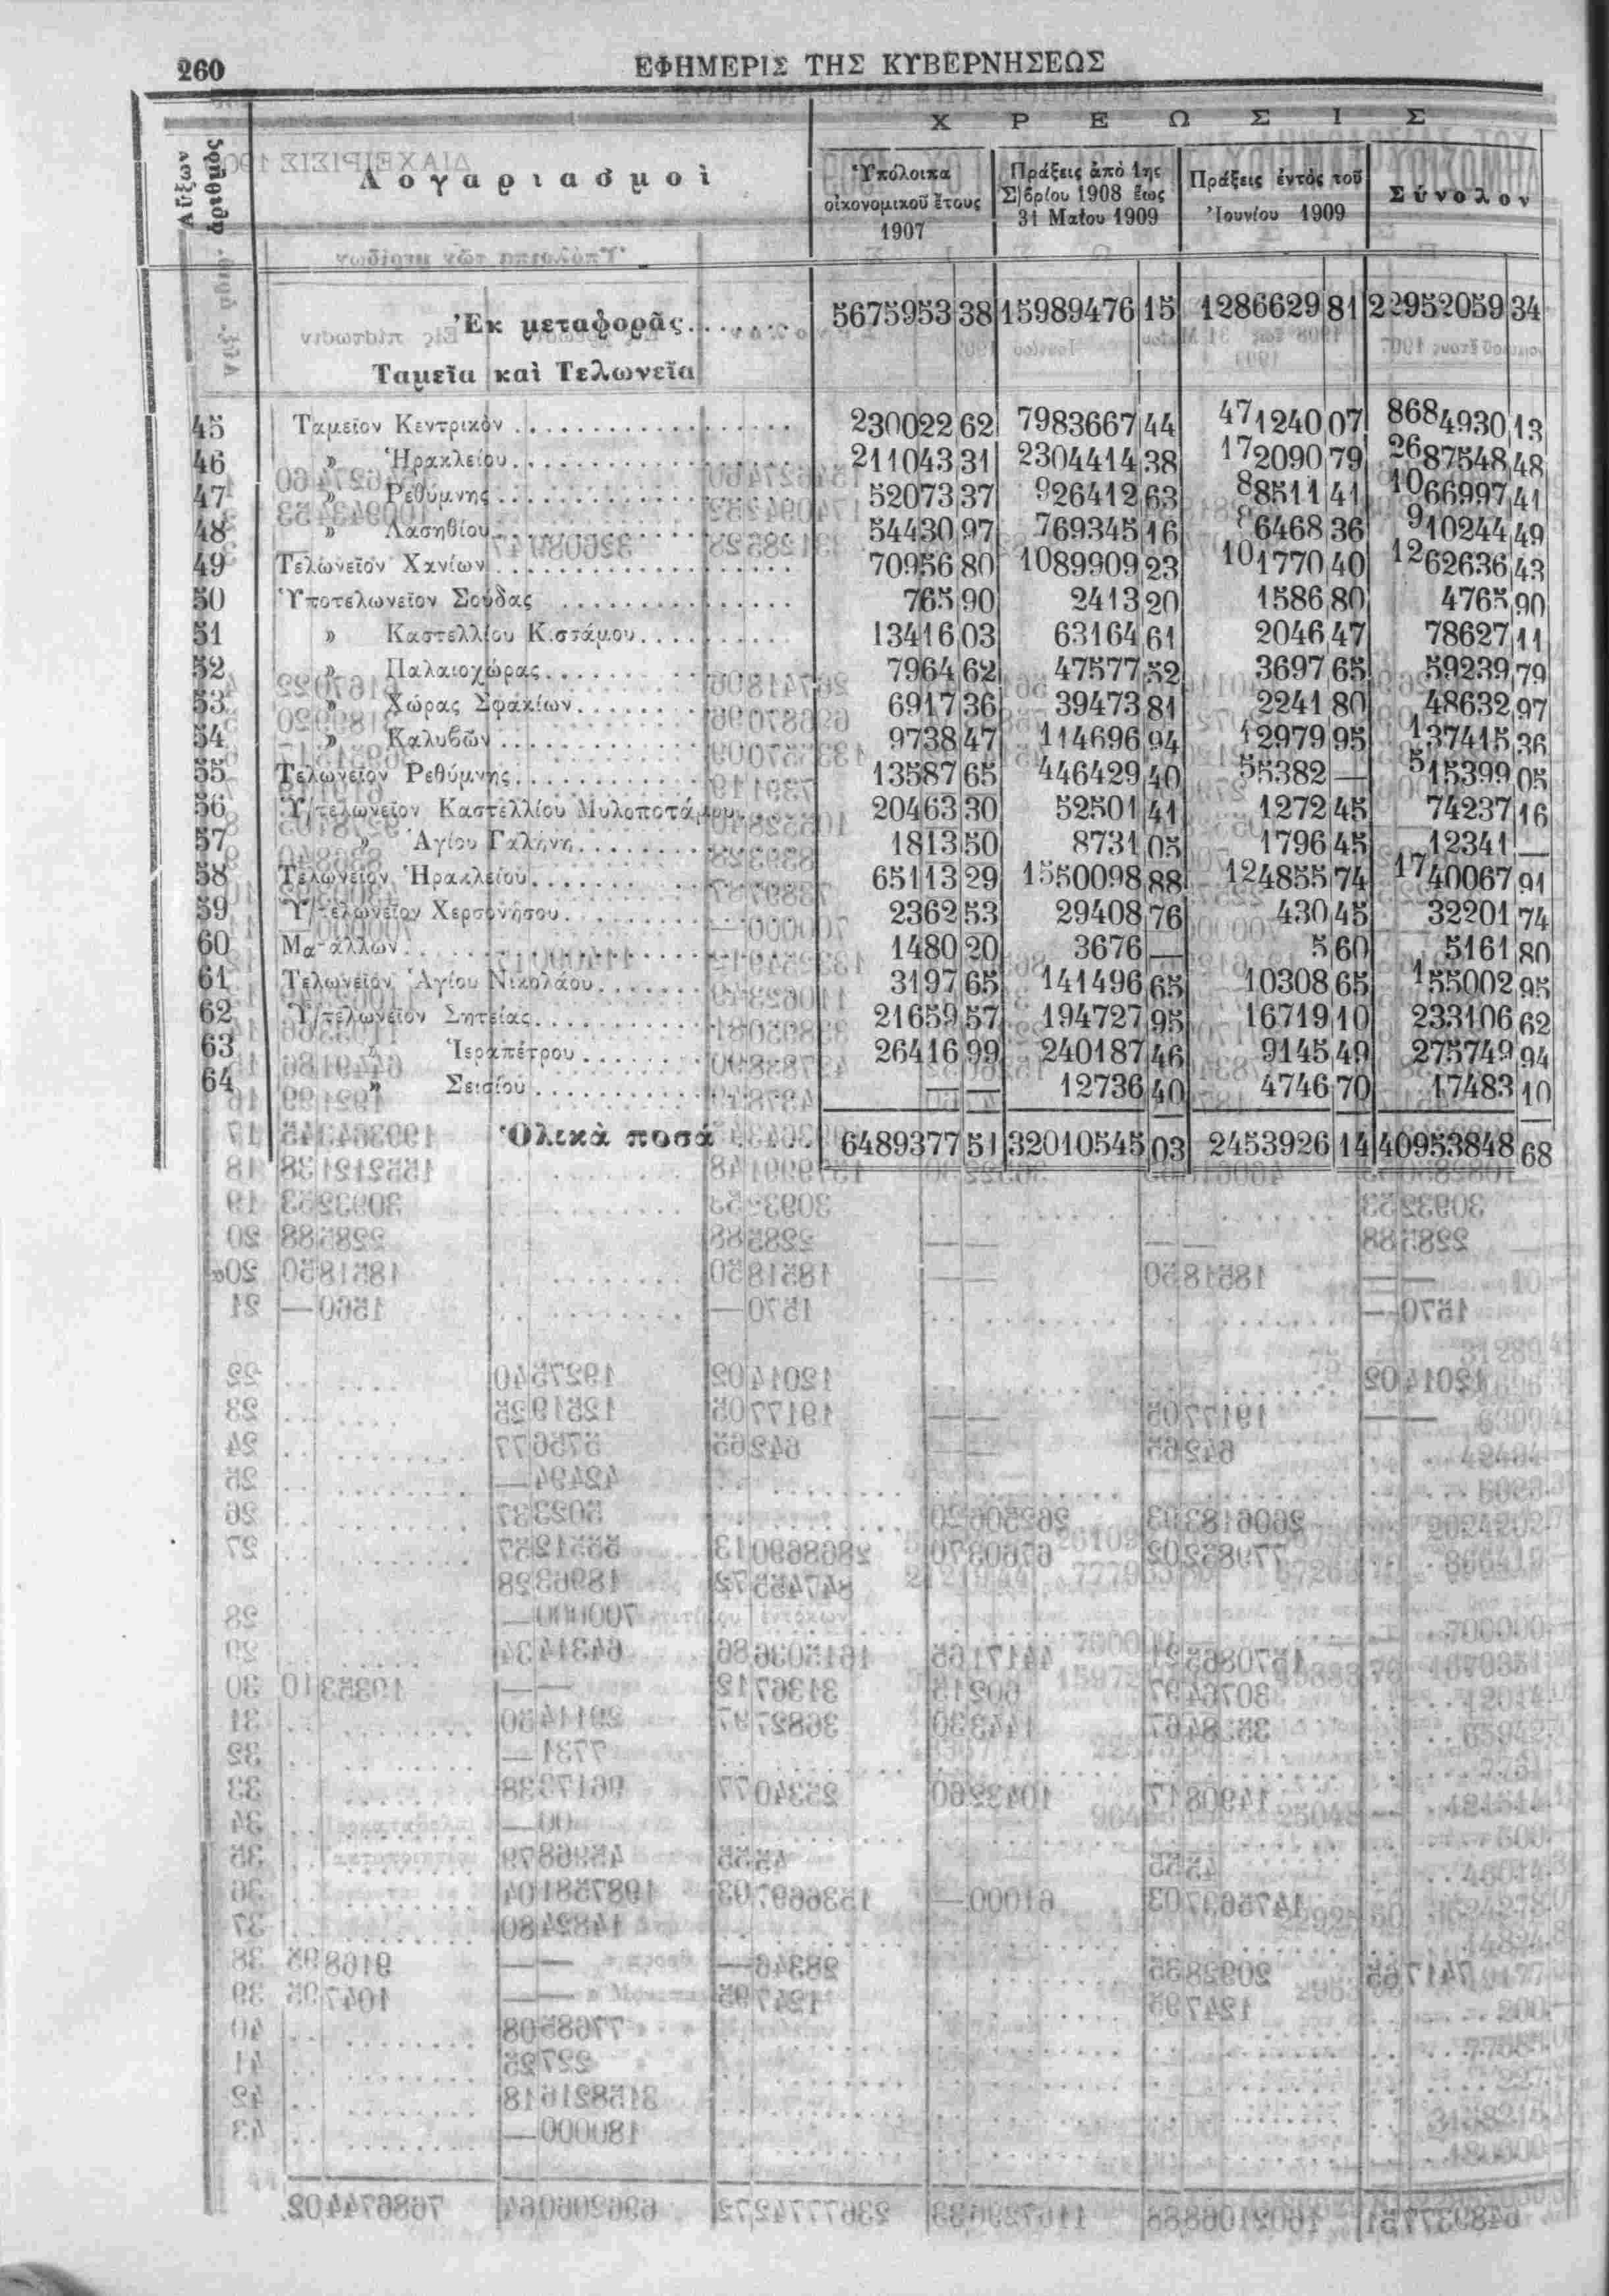 260 ΕΦΗΜΕΡΙΣ ΤΗΣ ΚΥΒΕΡΝΗΣΕΩΣ
Αὔξων ἀριθμὸς
Λογαριασμοὶ
ΧΡΕΩΣΙΣ
Ὑπόλοιπα οἰκονομικοῦ ἔτους 1907
Πράξεις ἀπὸ 1ης Σ)βρίου 1908 ἕως 31 Μαΐου 1909
Πράξεις ἐντὸς τοῦ Ἰουνίου 1909
Σύνολον
Ἐκ μεταφορᾶς........ 5675953 38 15989476 15 1286629 81 22952059 34
Ταμεῖα καὶ Τελωνεῖα
45 Ταμεῖον Κεντρικὸν 230022 62 7983667 44 471240 07 8684930 13
46 » Ἡρακλείου 211043 31 2304414 38 172090 79 2687548 48
47 » Ρεθύμνης 52073 37 926412 63 88511 41 1066997 41
48 » Λασηθίου 54430 97 769345 16 86468 36 910244 49
49 Τελωνεῖον Χανίων 70956 80 1089909 23 101770 40 1262636 43
50 Ὑποτελωνεῖον Σούδας 765 90 2413 20 1586 80 4765 90
51 » Καστελλίου Κισσάμου 13416 03 63164 61 2046 47 78627 11
52 » Παλαιοχώρας 7964 62 47577 52 3697 65 59239 79
53 » Χώρας Σφακίων 6917 36 39473 81 2241 80 48632 97
54 » Καλυβῶν 9738 47 114696 94 12979 95 137415 36
55 Τελωνεῖον Ρεθύμνης 13587 65 446429 40 55382 — 515399 05
56 Ὑ/τελωνεῖον Καστελλίου Μυλοποτάμου 20463 30 52501 41 1272 45 74237 16
57 » Ἁγίου Γαλήνη 1813 50 8731 05 1796 45 12341 —
58 Τελωνεῖον Ἡρακλείου 65113 29 1550098 88 124855 74 1740067 91
59 Ὑ/τελωνεῖον Χερσονήσου 2362 53 29408 76 430 45 32201 74
60 Μα-άλλων 1480 20 3676 — 5 60 5161 80
61 Τελωνεῖον Ἁγίου Νικολάου 3197 65 141496 65 10308 65 155002 95
62 Ὑ/τελωνεῖον Σητείας 21659 57 194727 95 16719 10 233106 62
63 » Ἱεραπέτρου 26416 99 240187 46 9145 49 275749 94
64 » Σεισίου — — 12736 40 4746 70 17483 10
Ὁλικὰ ποσὰ 6489377 51 32010545 03 2453926 14 40953848 68